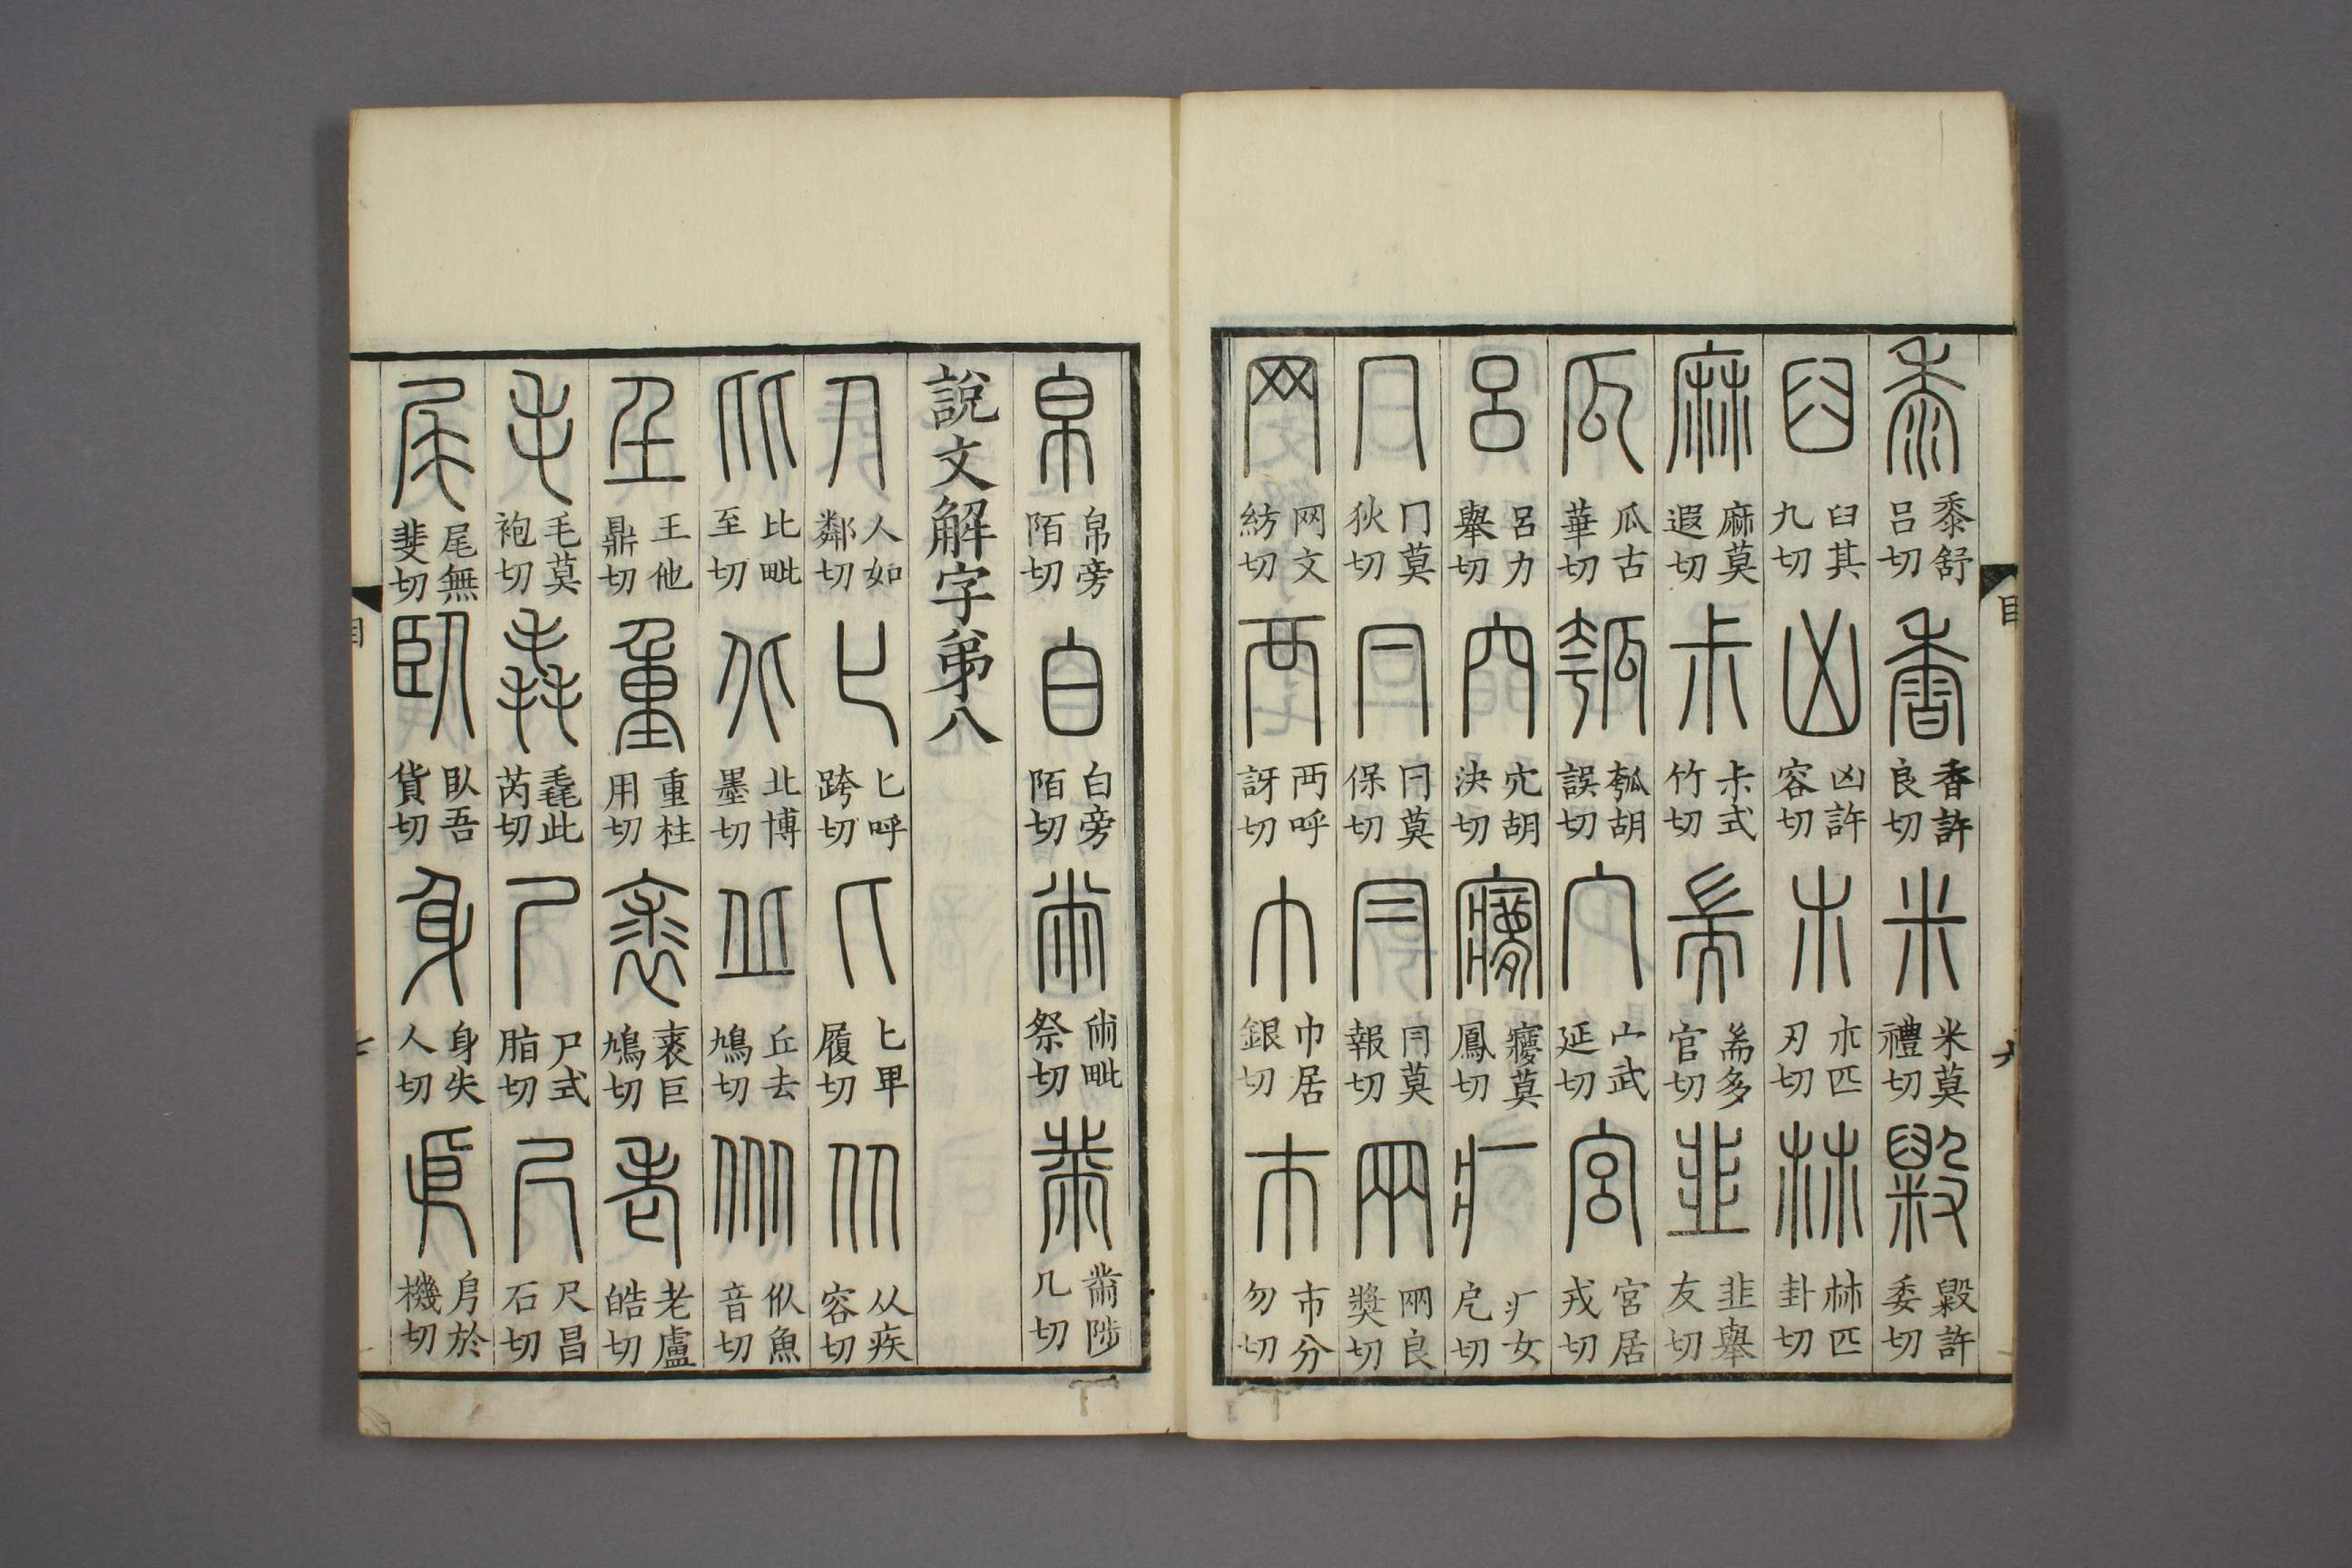 黍 黍舒呂切 香 香許良切 米 米莫禮切 毇 毇許委切
臼 臼其九切 凶 凶許容切 朩 朩匹刃切 𣏟 𣏟匹卦切
麻 麻莫遐切 尗 尗式竹切 耑 耑多官切 韭 韭舉友切
瓜 瓜古華切 瓠 瓠胡誤切 宀 宀武延切 宮 宮居戎切
呂 呂力舉切 穴 穴胡決切 㝱 㝱莫鳳切 疒 疒女戹切
冖 冖莫狄切 𠔼 𠔼莫保切 冃 冃莫報切 㒳 㒳良獎切
网 网文紡切 襾 襾呼訝切 巾 巾居銀切 巿 巿分勿切
帛 帛旁陌切 白 白旁陌切 㡀 㡀毗祭切 黹 黹陟几切
說文解字弟八
人 人如鄰切 𠤎 𠤎呼跨切 匕 匕卑履切 从 从疾容切
比 比毗至切 北 北博墨切 丘 丘去鳩切 㐺 㐺魚音切
𡈼 𡈼他鼎切 重 重柱用切 裘 裘巨鳩切 老 老盧皓切
毛 毛莫袍切 毳 毳此芮切 尸 尸式脂切 尺 尺昌石切
尾 尾無斐切 臥 臥吾貨切 身 身失人切 㐆 㐆於機切